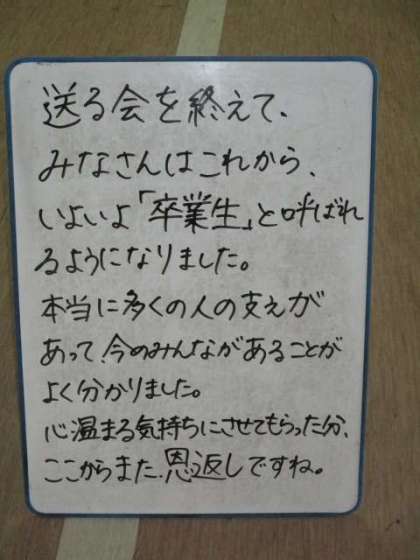 送る会を終えて、
みなさんはこれから、
いよいよ「卒業生」と呼ばれ
るようになりました。
本当に多くの人の支えが
あって、今のみんながあることが
よく分かりました。
心温まる気持ちにさせてもらった分、
ここからまた、恩返しですね。